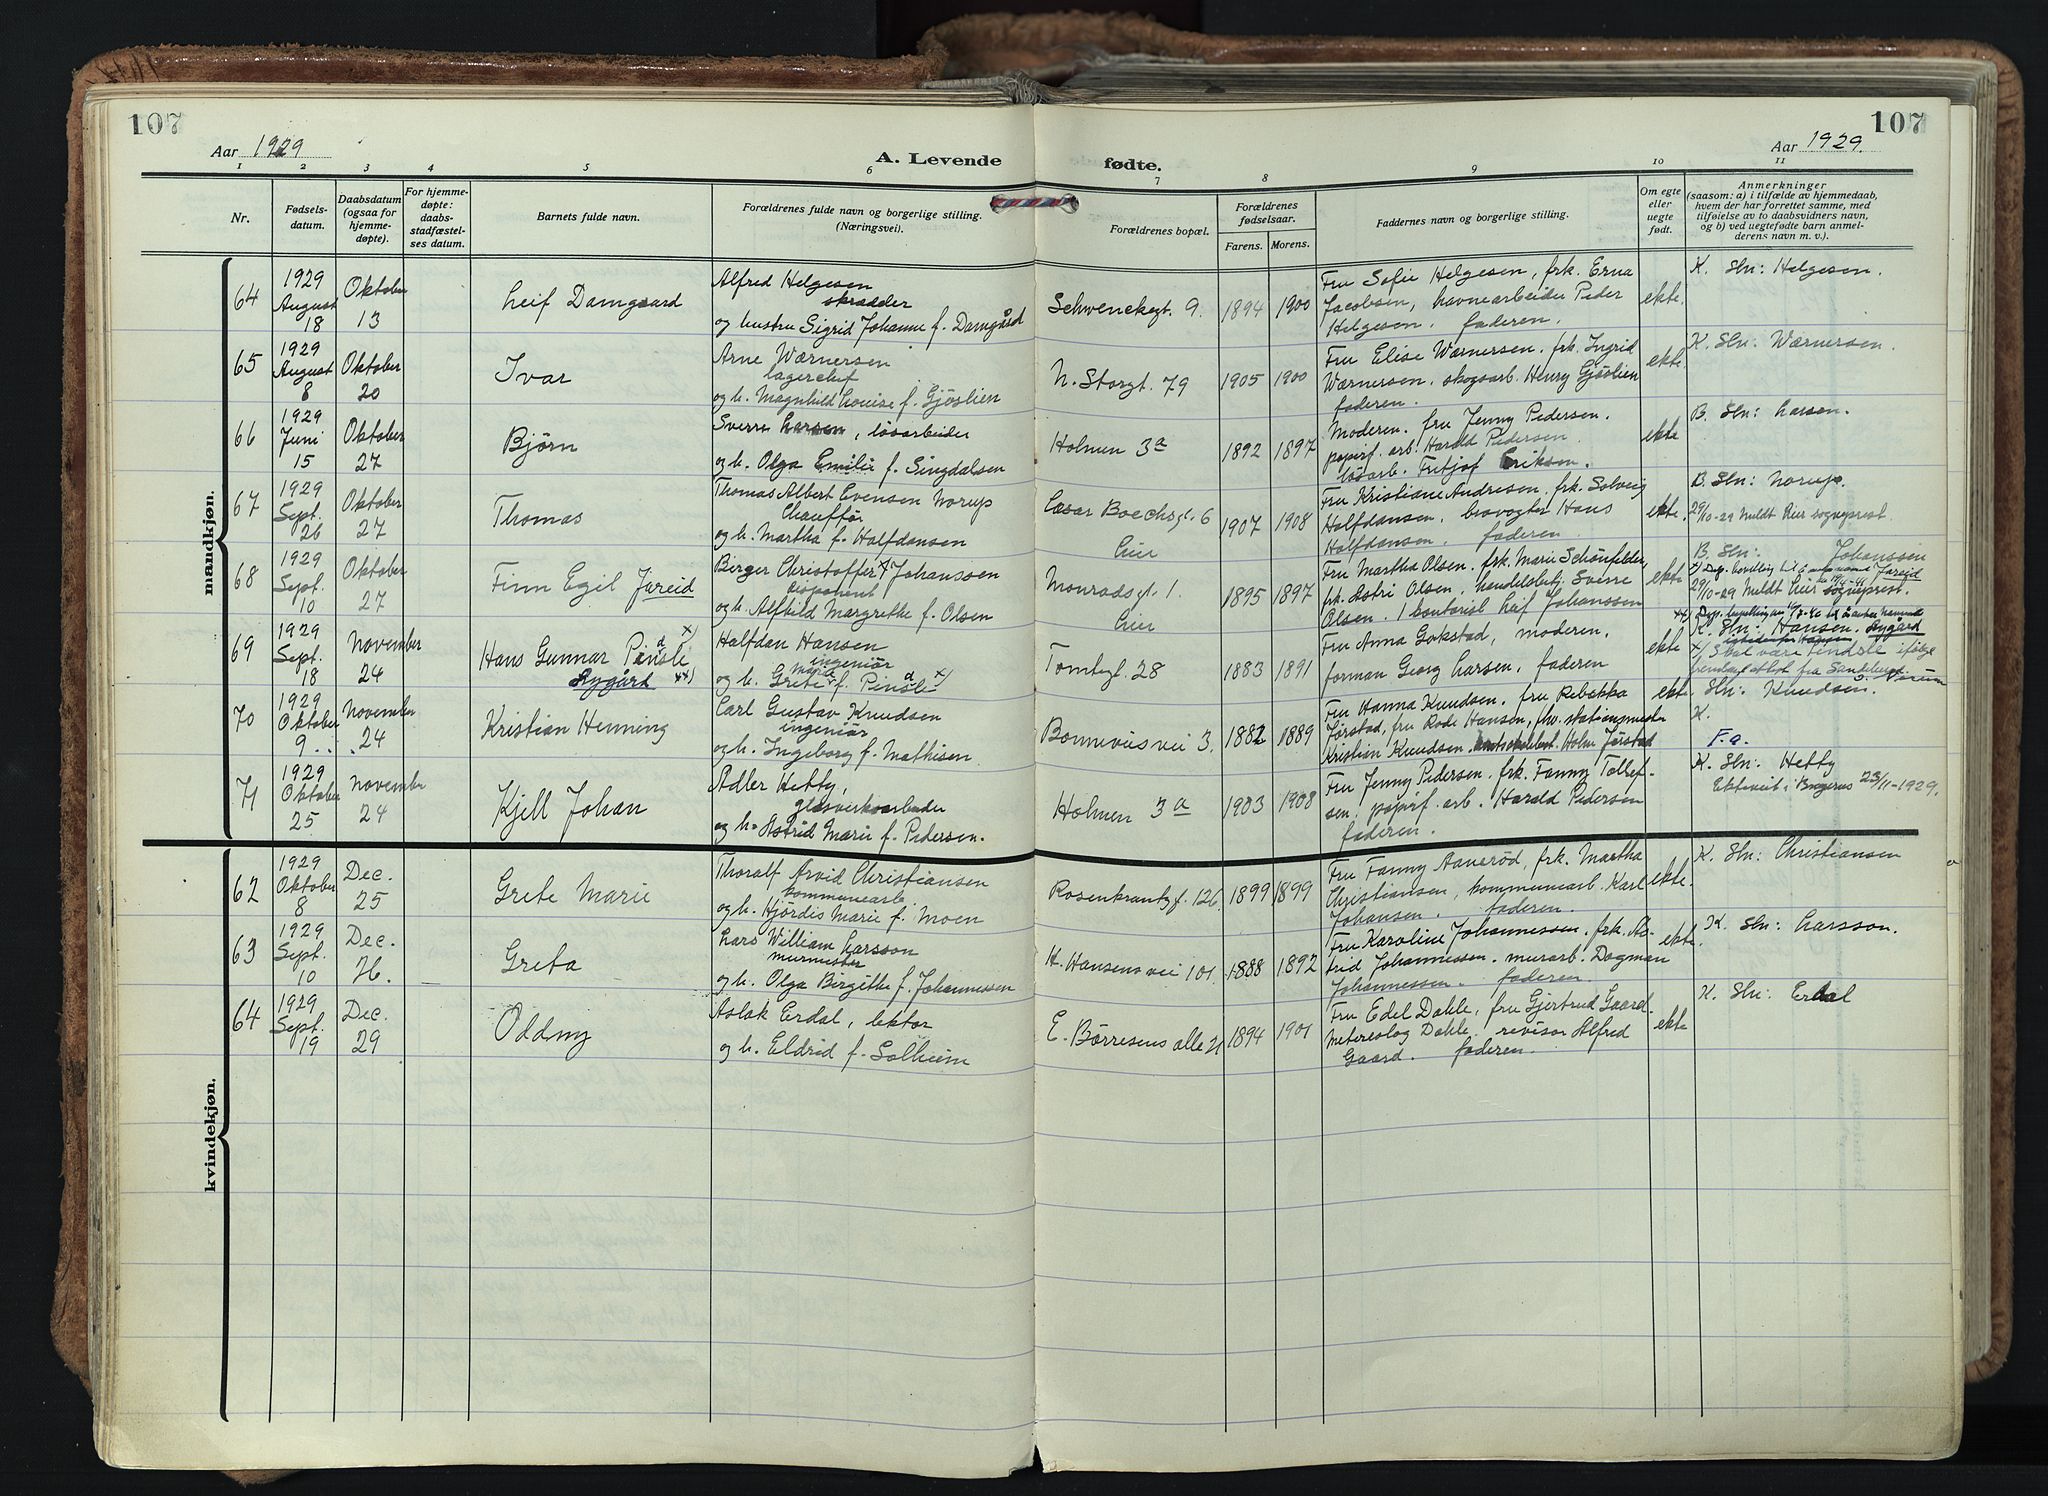 107
107
Aar 1929
A. Levende fødte.
Aar 1929.
1 2 3 4 5 6 7 8 9 10 11
Nr.
Fødsels-
datum.
Daabsdatum
(ogsaa for
hjemme-
døpte).
For hjemme-
døpte:
daabs-
stadfæstel-
ses datum.
Barnets fulde navn.
Forældrenes fulde navn og borgerlige stilling.
(Næringsvei).
Forældrenes bopæl.
Forældrenes
fødselsaar.
Farens. Morens.
Faddernes navn og borgerlige stilling.
Om egte
eller
uegte
født.
Anmerkninger
(saasom: a) i tilfælde av hjemmedaab,
hvem der har forrettet samme, med
tilføielse av to daabsvidners navn,
og b) ved uegtefødte barn anmel-
derens navn m. v.).
mandkjøn.
64
1929
August
18
Oktober
13
Leif Damgaard
Alfred Helgesen
skrædder
og hustru Sigrid Johanne f. Damgård
Schwenckegt. 9.
1894 1900
Fru Sofie Helgesen, frk. Erna
Jacobsen, havnearbeider Peder
Helgesen. faderen.
ekte.
K. Sln: Helgesen.
65
1929
August
8
Oktober
20
Ivar
Arne Wærnersen
lagerchef
og h. Magnhild Louise f. Gjöslien
N. Storgt. 79
1905 1900
Fru Elise Wærnersen, frk. Ingrid
Wærnersen, skogsarb. Henry Gjöslien
faderen.
ekte.
K. Sln: Wærnersen.
66
1929
Juni
15
Oktober
27
Bjørn
Sverre Larsen, løsarbeider
og h. Olga Emilie f. Singdalsen
Holmen 3a
1892 1897
Moderen. fru Jenny Pedersen.
papirf. arb. Harald Pedersen
løsarb. Fritjof Eriksen.
ekte
B. Sln: Larsen.
67
1929
Sept.
26
Oktober
27
Thomas
Thomas Albert Evensen Norup
Chauffør
og h. Martha f. Halfdansen
Cæsar Boechsgt. 6
Lier
1907 1908
Fru Kristiane Andresen. frk. Solveig
Halfdansen, brovogter Hans
Halfdansen, faderen.
ekte.
B. Sln: Norup.
29/10-29 Meldt Lier sogneprest.
68
1929
Sept.
10
Oktober
27
Finn Egil Jareid
Birger Christoffer x) Johanssen
disponent
og h. Alfhild Margrethe f. Olsen
Monradsgt. 1.
Lier
1895 1897
Fru Martha Olsen. frk. Marie Schönfelder,
frk. Astri Olsen, handelsbetj. Sverre
Olsen. kontorist Leif Johanssen
ekte
B. Sln: Johanssen
29/10-29 Meldt Lier sogneprest.
69
1929
Sept.
18
November
24
Hans Gunnar Pinsle x)
Rygård xx)
Halfdan Hansen
ingeniør
og h. Grete Marie f. Pinsle x)
Tomtegt. 28
1883 1891
Fru Anna Gokstad, moderen.
forman Georg Larsen, faderen
ekte
K. Sln: Hansen. Rygård
x) Skal være Pindsle ifølge
70
1929
Oktober
9
November
24
Kristian Henning
Carl Gustav Knudsen
ingeniør
og h. Ingeborg f. Mathisen
Bonnevies vei 3.
1882 1889
Fru Hanna Knudsen. fru Rebekka
Jørstad, fru Rode Hansen, fhv. stationsmester
Kristian Knudsen. Holm Jørstad
ekte.
Sln: Knudsen.
K.
F.a.
71
1929
Oktober
25
November
24
Kjell Johan
Adler Hetty,
glasverksarbeider
og h. Astrid Marie f. Pedersen.
Holmen 3a
1903 1908
Fru Jenny Pedersen. frk. Fanny Tollef-
sen, papirf. arb. Harald Pedersen
faderen.
K. Sln: Hetty
Ekteviet i Bragernes 23/11-1929.
kvindekjøn.
62
1929
Oktober
8
Dec.
25
Grete Marie
Thoralf Arvid Christiansen
kommunearb.
og h. Hjørdis Marie f. Moen
Rosenkrantzgt. 126
1899 1899
Fru Fanny Aanerød, frk. Martha
Christiansen, kommunearb. Karl
Johansen. faderen.
ekte.
K. Sln: Christiansen
63
1929
Sept.
10
Dec.
26.
Greta
Lars William Larsson
murmester
og h. Olga Birgithe f. Johannessen
H. Hansens vei 101.
1888 1892
Fru Karoline Johannessen. frk. As-
trid Johannessen. murarb. Dagman
Johannessen. faderen.
ekte.
K. Sln: Larsson.
64
1929
Sept.
19
Dec.
29
Oddny
Aslak Erdal, lektor
og h. Eldrid f. Solheim
E. Børresens alle 21
1894 1901
Fru Edel Dahle, fru Gjertrud Gaard.
metereolog Dahle. revisor Alfred
Gaard. faderen.
ekte
K. Sln: Erdal